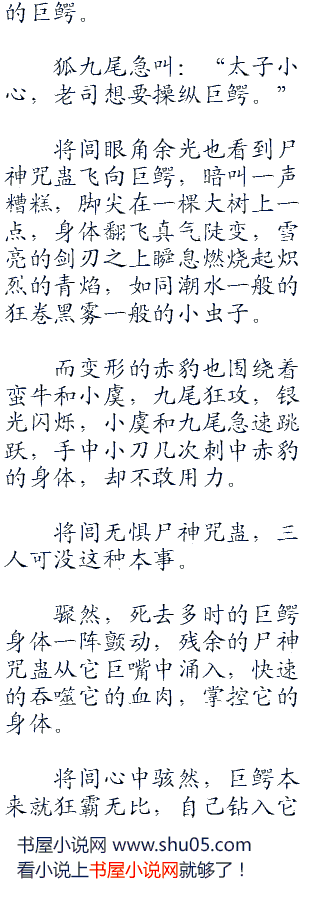 的巨鳄。
狐九尾急叫：“太子小
心，老司想要操纵巨鳄。”
将闾眼角余光也看到尸
神咒蛊飞向巨鳄，暗叫一声
糟糕，脚尖在一棵大树上一
点，身体翻飞真气陡变，雪
亮的剑刃之上瞬息燃烧起炽
烈的青焰，如同潮水一般的
狂卷黑雾一般的小虫子。
而变形的赤豹也围绕着
蛮牛和小虞，九尾狂攻，银
光闪烁，小虞和九尾急速跳
跃，手中小刀几次刺中赤豹
的身体，却不敢用力。
将闾无惧尸神咒蛊，三
人可没这种本事。
骤然，死去多时的巨鳄
身体一阵颤动，残余的尸神
咒蛊从它巨嘴中涌入，快速
的吞噬它的血肉，掌控它的
身体。
将闾心中骇然，巨鳄本
来就狂霸无比，自己钻入它
书屋小说网 www.shu05.com
看小说上书屋小说网就够了！